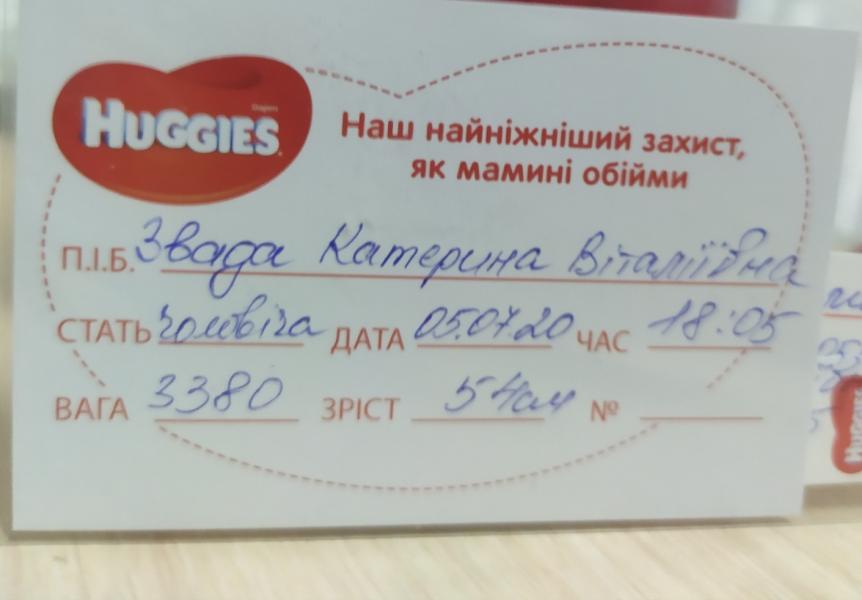 HUGGIES
Наш найніжніший захист,
як мамині обійми
П.І.Б. Звада Катерина Віталіївна
СТАТЬ чоловіча ДАТА 05.07.20 ЧАС 18:05
ВАГА 3380 ЗРІСТ 54см №
HUGGIES